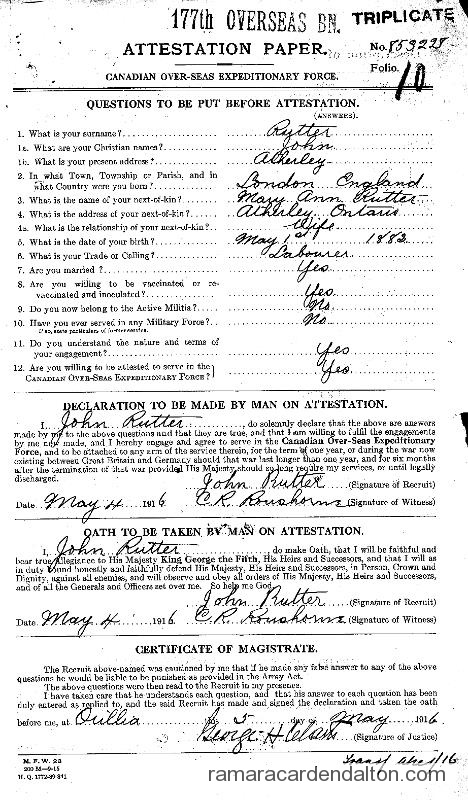 177th OVERSEAS BN. TRIPLICATE
ATTESTATION PAPER.
No. 853228
Folio. 10
CANADIAN OVER-SEAS EXPEDITIONARY FORCE.
QUESTIONS TO BE PUT BEFORE ATTESTATION.
(ANSWERS).
1. What is your surname? Rutter
1a. What are your Christian names? John
1b. What is your present address? Atherley
2. In what Town, Township or Parish, and in
what Country were you born? London England
3. What is the name of your next-of-kin? Mary Ann Rutter
4. What is the address of your next-of-kin? Atherley Ontario
4a. What is the relationship of your next-of-kin? Wife
5. What is the date of your birth? May 1st 1882
6. What is your Trade or Calling? Labourer
7. Are you married? Yes
8. Are you willing to be vaccinated or re-
vaccinated and inoculated? Yes
9. Do you now belong to the Active Militia? No
10. Have you ever served in any Military Force? No
If so, state particulars of former service.
11. Do you understand the nature and terms of
your engagement? Yes
12. Are you willing to be attested to serve in the
CANADIAN OVER-SEAS EXPEDITIONARY FORCE? Yes
DECLARATION TO BE MADE BY MAN ON ATTESTATION.
I, John Rutter, do solemnly declare that the above are answers
made by me to the above questions and that they are true, and that I am willing to fulfil the engagements
by me now made, and I hereby engage and agree to serve in the Canadian Over-Seas Expeditionary
Force, and to be attached to any arm of the service therein, for the term of one year, or during the war now
existing between Great Britain and Germany should that war last longer than one year, and for six months
after the termination of that war provided His Majesty should so long require my services, or until legally
discharged.
John Rutter (Signature of Recruit)
Date May 4 1916 C.R. (Signature of Witness)
OATH TO BE TAKEN BY MAN ON ATTESTATION.
I, John Rutter, do make Oath, that I will be faithful and
bear true Allegiance to His Majesty King George the Fifth, His Heirs and Successors, and that I will as
in duty bound honestly and faithfully defend His Majesty, His Heirs and Successors, in Person, Crown and
Dignity, against all enemies, and will observe and obey all orders of His Majesty, His Heirs and Successors,
and of all the Generals and Officers set over me. So help me God.
John Rutter (Signature of Recruit)
Date May 4 1916 C.R. (Signature of Witness)
CERTIFICATE OF MAGISTRATE.
The Recruit above-named was cautioned by me that if he made any false answer to any of the above
questions he would be liable to be punished as provided in the Army Act.
The above questions were then read to the Recruit in my presence.
I have taken care that he understands each question, and that his answer to each question has
been duly entered as replied to, and the said Recruit has made and signed the declaration and taken the oath
before me, at Orillia this 5 day of May 1916
George H (Signature of Justice)
M. F. W. 23
200 M—9-15
H. Q. 1772-39-841
ramaracardendalton.com